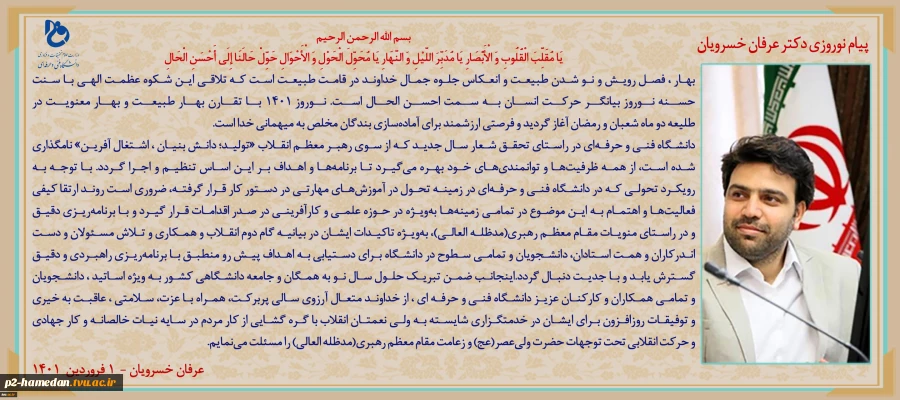 پیام نوروزی دکتر عرفان خسرویان
بسم الله الرحمن الرحیم
یَا مُقَلِّبَ الْقُلُوبِ وَ الْأَبْصَارِ یَا مُدَبِّرَ اللَّیْلِ وَ النَّهَارِ یَا مُحَوِّلَ الْحَوْلِ وَ الْأَحْوَالِ حَوِّلْ حَالَنَا إِلَی أَحْسَنِ الْحَالِ
بهار، فصل رویش و نو شدن طبیعت و انعکاس جلوه جمال خداوند در قامت طبیعت است که تلاقی این شکوه عظمت الهی با سنت
حسنه نوروز بیانگر حرکت انسان به سمت احسن الحال است. نوروز ۱۴۰۱ با تقارن بهار طبیعت و بهار معنویت در
طلیعه دو ماه شعبان و رمضان آغاز گردید و فرصتی ارزشمند برای آماده‌سازی بندگان مخلص به میهمانی خدا است.
دانشگاه فنی و حرفه‌ای در راستای تحقق شعار سال جدید که از سوی رهبر معظم انقلاب «تولید؛ دانش بنیان ، اشتغال آفرین» نامگذاری
شده است، از همه ظرفیت‌ها و توانمندی‌های خود بهره می‌گیرد تا برنامه‌ها و اهداف بر این اساس تنظیم و اجرا گردد. با توجه به
رویکرد تحولی که در دانشگاه فنی و حرفه‌ای در زمینه تحول در آموزش‌های مهارتی در دستور کار قرار گرفته، ضروری است روند ارتقا کیفی
فعالیت‌ها و اهتمام به این موضوع در تمامی زمینه‌ها به‌ویژه در حوزه علمی و کارآفرینی در صدر اقدامات قرار گیرد و با برنامه‌ریزی دقیق
و در راستای منویات مقام معظم رهبری(مدظله العالی)، به‌ویژه تاکیدات ایشان در بیانیه گام دوم انقلاب و همکاری و تلاش مسئولان و دست
اندرکاران و همت استادان، دانشجویان و تمامی سطوح در دانشگاه برای دستیابی به اهداف پیش رو منطبق با برنامه‌ریزی راهبردی و دقیق
گسترش یابد و با جدیت دنبال گردد.اینجانب ضمن تبریک حلول سال نو به همگان و جامعه دانشگاهی کشور به ویژه اساتید ، دانشجویان
و تمامی همکاران و کارکنان عزیز دانشگاه فنی و حرفه ای ، از خداوند متعال آرزوی سالی پربرکت، همراه با عزت، سلامتی ، عاقبت به خیری
و توفیقات روزافزون برای ایشان در خدمتگزاری شایسته به ولی نعمتان انقلاب با گره گشایی از کار مردم در سایه نیات خالصانه و کار جهادی
و حرکت انقلابی تحت توجهات حضرت ولی‌عصر(عج) و زعامت مقام معظم رهبری(مدظله العالی) را مسئلت می‌نمایم.
عرفان خسرویان - ۱ فروردین ۱۴۰۱
p2-hamedan.tvu.ac.ir